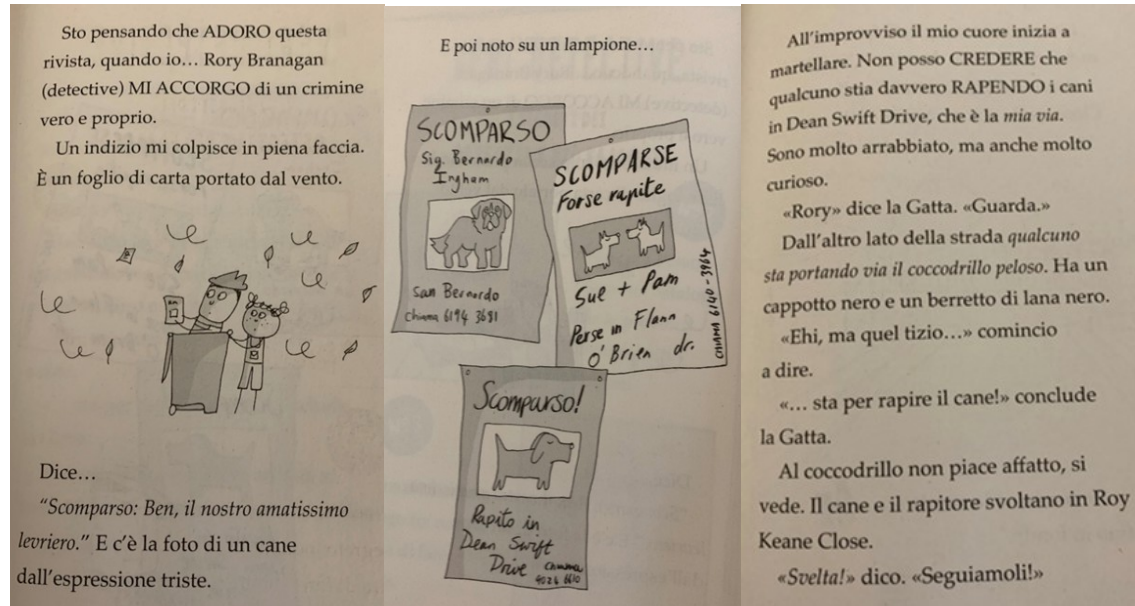 Sto pensando che ADORO questa
rivista, quando io… Rory Branagan
(detective) MI ACCORGO di un crimine
vero e proprio.
Un indizio mi colpisce in piena faccia.
È un foglio di carta portato dal vento.
Dice…
“Scomparso: Ben, il nostro amatissimo
levriero.” E c’è la foto di un cane
dall’espressione triste.
E poi noto su un lampione…
SCOMPARSO
Sig. Bernardo
Ingham
San Bernardo
chiama 6194 3681
SCOMPARSE
Forse rapite
Sue + Pam
Perse in Flann
O'Brien dr.
CHIAMA 6140-3964
Scomparso!
Rapito in
Dean Swift
Drive chiama
4026 6610
All’improvviso il mio cuore inizia a
martellare. Non posso CREDERE che
qualcuno stia davvero RAPENDO i cani
in Dean Swift Drive, che è la mia via.
Sono molto arrabbiato, ma anche molto
curioso.
«Rory» dice la Gatta. «Guarda.»
Dall’altro lato della strada qualcuno
sta portando via il coccodrillo peloso. Ha un
cappotto nero e un berretto di lana nero.
«Ehi, ma quel tizio…» comincio
a dire.
«… sta per rapire il cane!» conclude
la Gatta.
Al coccodrillo non piace affatto, si
vede. Il cane e il rapitore svoltano in Roy
Keane Close.
«Svelta!» dico. «Seguiamoli!»